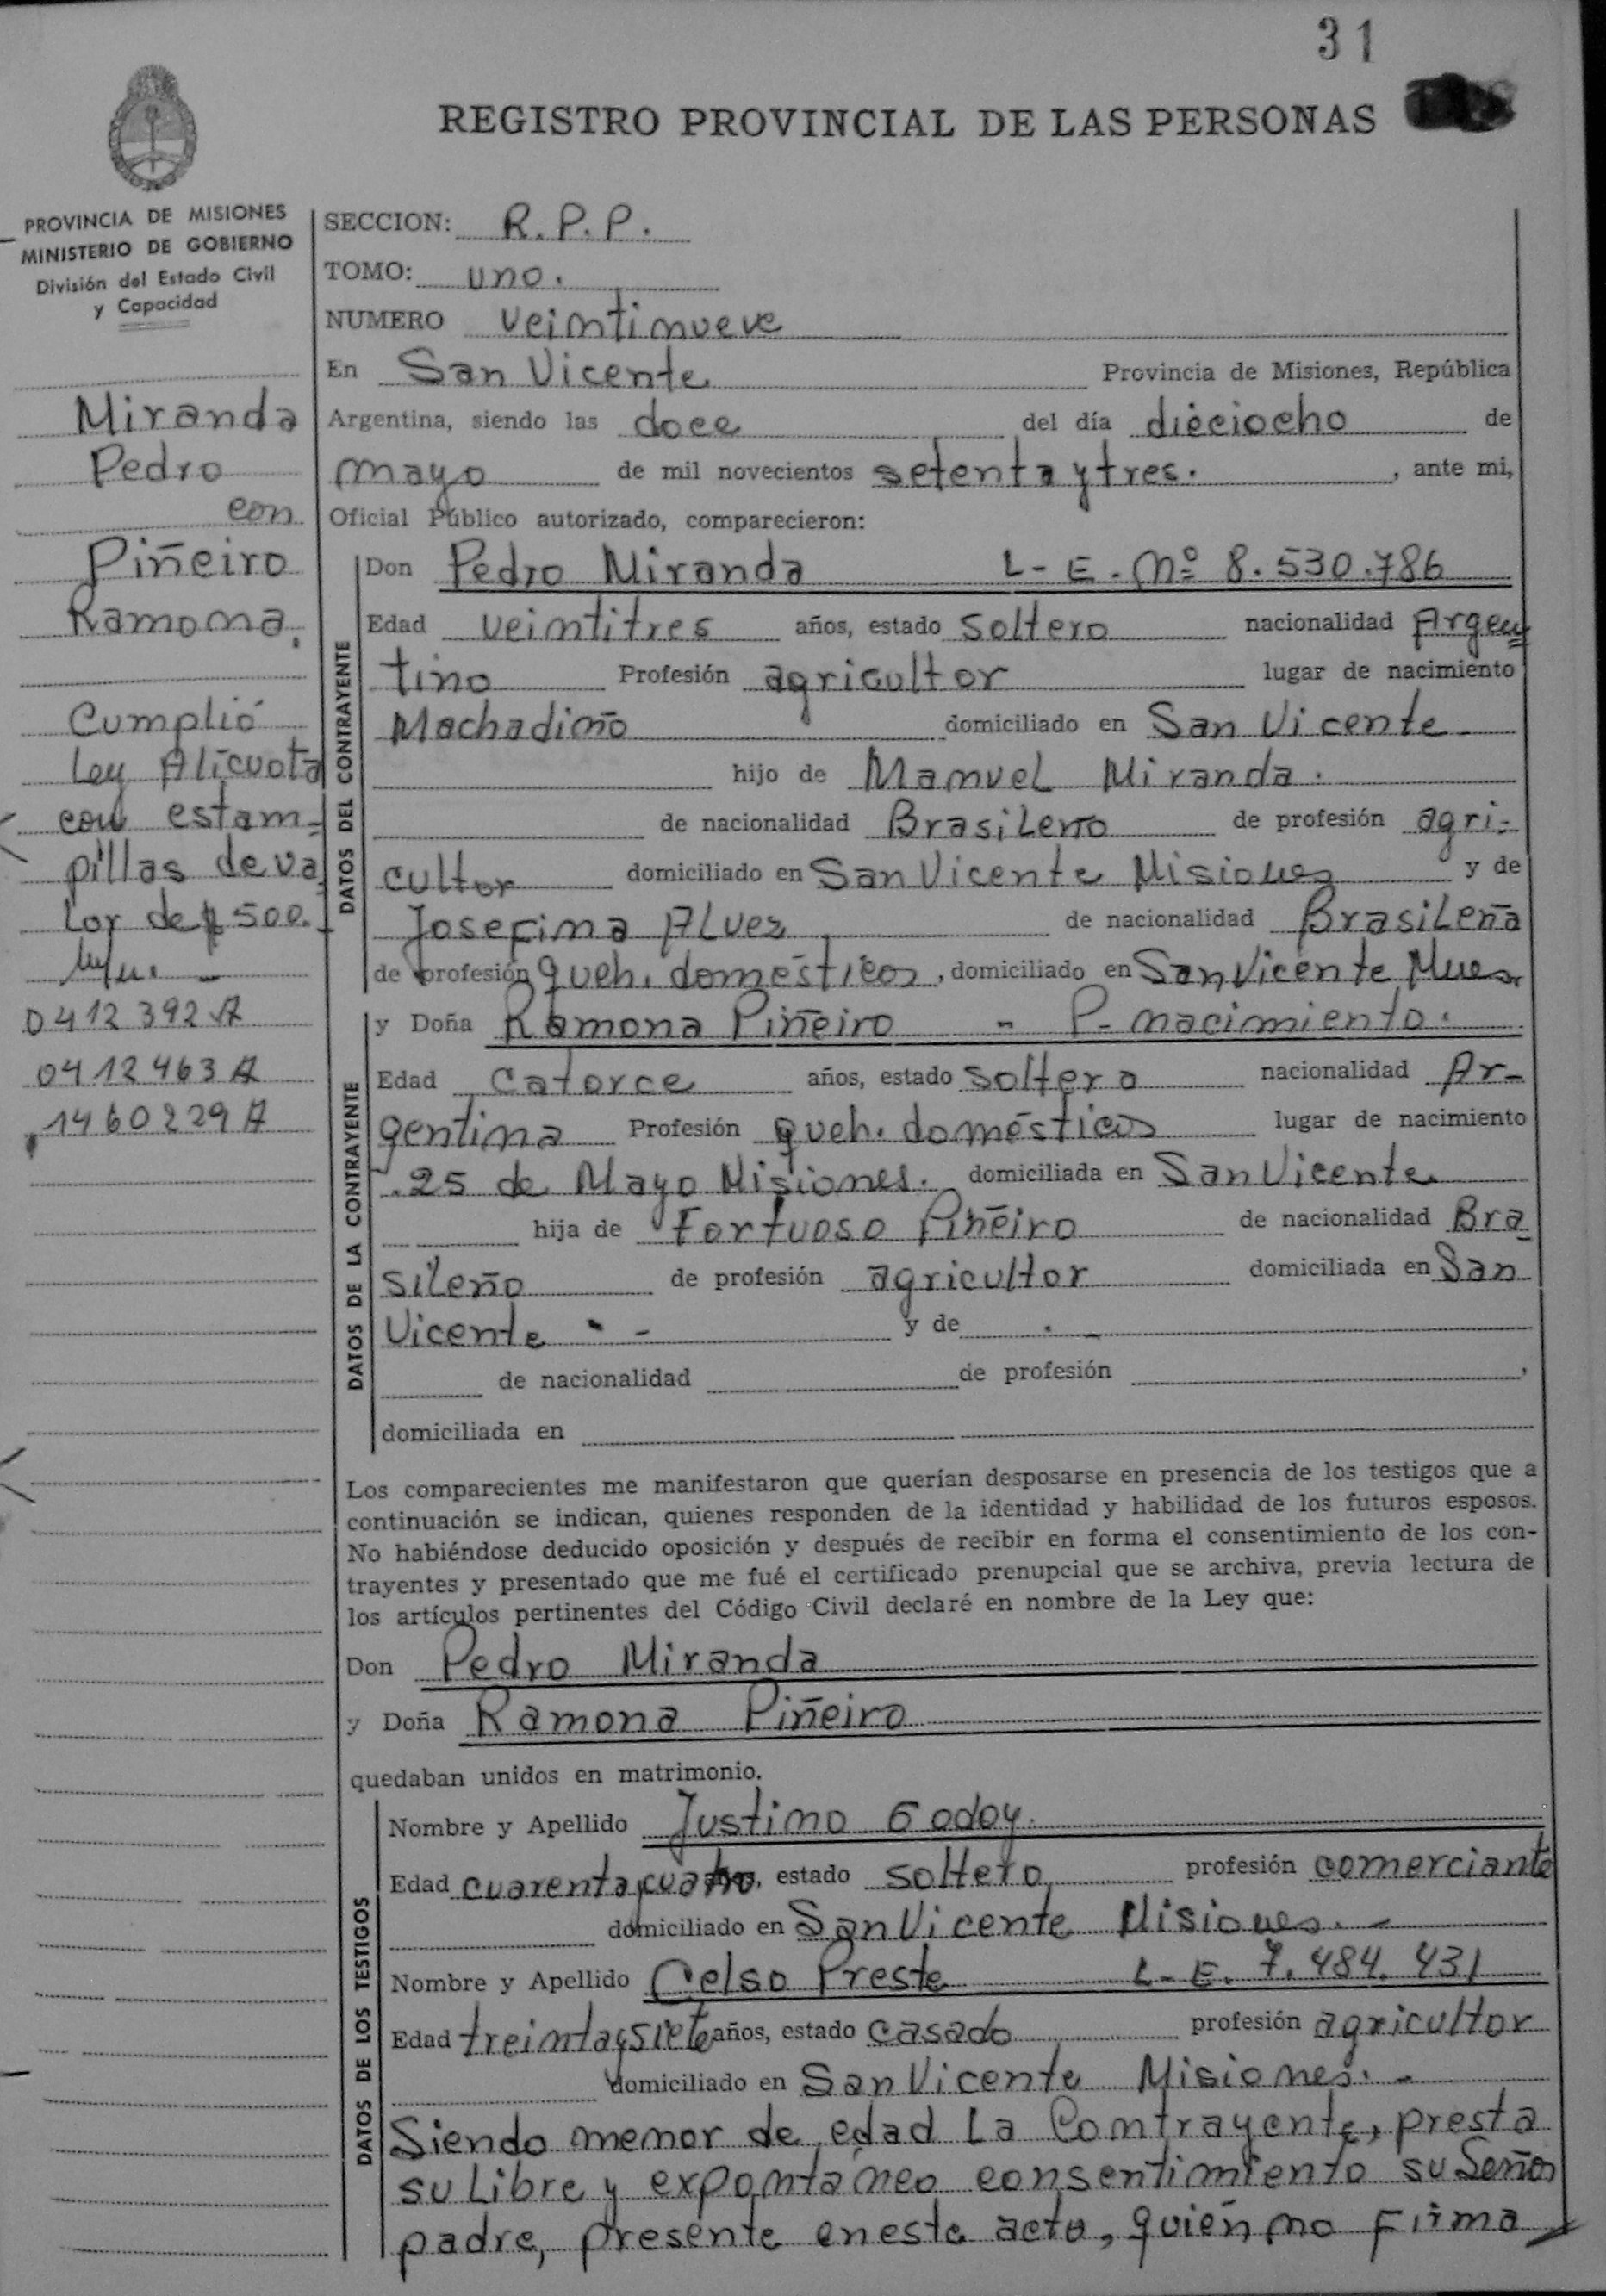 31
REGISTRO PROVINCIAL DE LAS PERSONAS
PROVINCIA DE MISIONES
MINISTERIO DE GOBIERNO
División del Estado Civil
y Capacidad
Miranda
Pedro
con
Piñeiro
Ramona.
Cumplió
Ley Alícuota
con estam-
pillas de va
lor de $ 500.-
m/n. -
0412392 A
0412463 A
1460229 A
SECCION: R.P.P.
TOMO: uno.
NUMERO veintinueve
En San Vicente Provincia de Misiones, República
Argentina, siendo las doce del día dieciocho de
mayo de mil novecientos setenta y tres. , ante mi,
Oficial Público autorizado, comparecieron:
DATOS DEL CONTRAYENTE
Don Pedro Miranda L-E. Nº 8.530.786
Edad veintitres años, estado soltero nacionalidad Argen
tino Profesión agricultor lugar de nacimiento
Machadiño domiciliado en San Vicente
hijo de Manuel Miranda.
de nacionalidad Brasileño de profesión agri-
cultor domiciliado en San Vicente Misiones y de
Josefina Alvez de nacionalidad Brasileña
de profesión queh. domésticos, domiciliado en San Vicente Mnes.
DATOS DE LA CONTRAYENTE
y Doña Ramona Piñeiro - P- nacimiento.
Edad Catorce años, estado soltera nacionalidad Ar-
gentina Profesión queh. domésticos lugar de nacimiento
25 de Mayo Misiones. domiciliada en San Vicente
hija de Fortuoso Piñeiro de nacionalidad Bra
sileño de profesión agricultor domiciliada en San
Vicente . - y de . -
de nacionalidad de profesión ,
domiciliada en
Los comparecientes me manifestaron que querían desposarse en presencia de los testigos que a
continuación se indican, quienes responden de la identidad y habilidad de los futuros esposos.
No habiéndose deducido oposición y después de recibir en forma el consentimiento de los con-
trayentes y presentado que me fué el certificado prenupcial que se archiva, previa lectura de
los artículos pertinentes del Código Civil declaré en nombre de la Ley que:
Don Pedro Miranda
y Doña Ramona Piñeiro
quedaban unidos en matrimonio.
DATOS DE LOS TESTIGOS
Nombre y Apellido Justino Godoy.
Edad cuarenta y cuatro, estado soltero profesión comerciante
domiciliado en San Vicente Misiones. -
Nombre y Apellido Celso Preste L-E. 7.484.431
Edad treinta y siete años, estado casado profesión agricultor
domiciliado en San Vicente Misiones. -
Siendo menor de edad La Contrayente, presta
su Libre y expontáneo consentimiento su Señor
padre, presente en este acto, quién no Firma